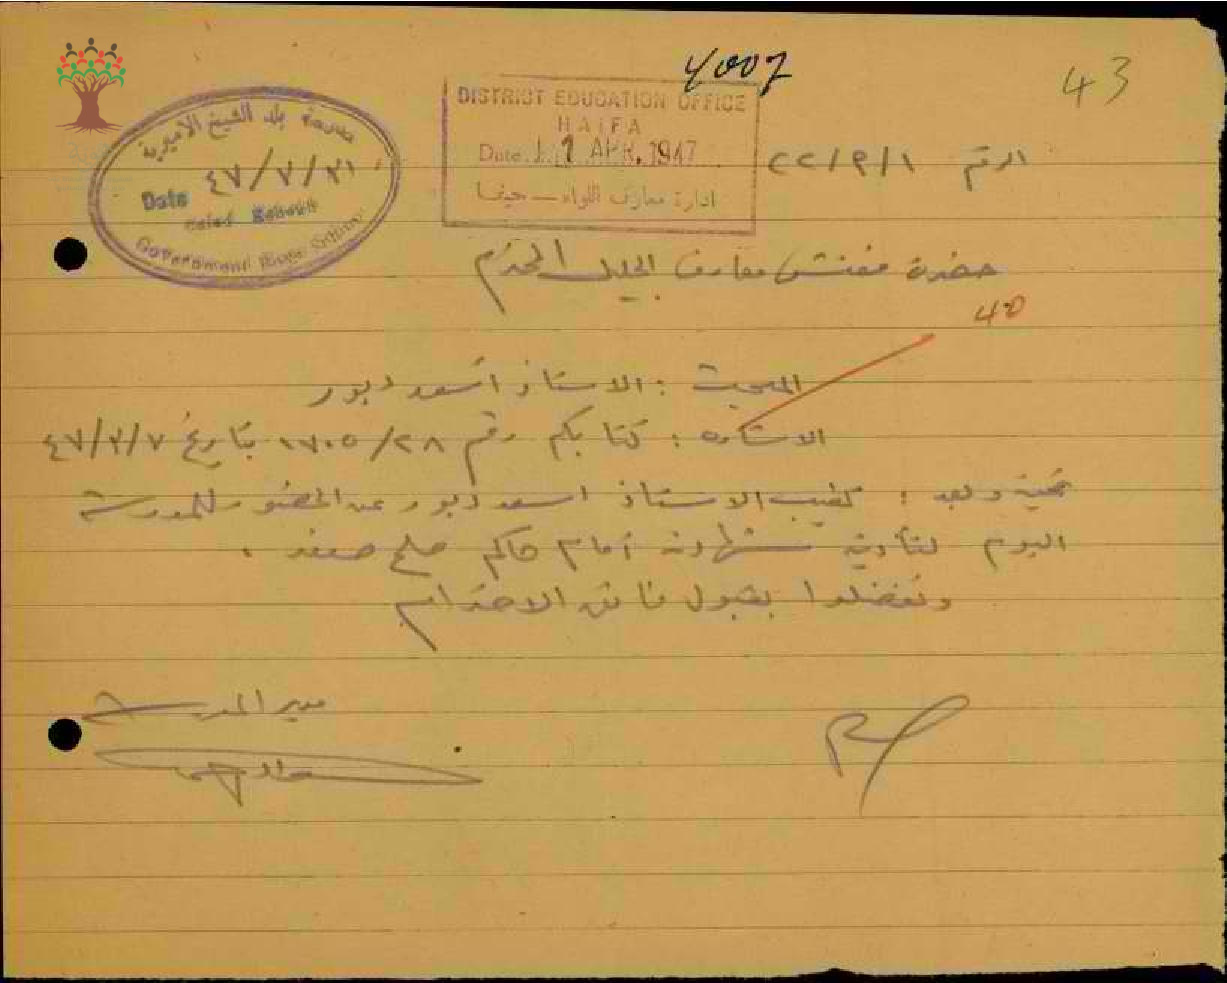 4007
43
مدرسة بلد الشيخ الاميرية
Date ٤٧/٧/٣١
Government
DISTRICT EDUCATION OFFICE
HAIFA
Date 1 APR. 1947
ادارة معارف اللواء – حيفا
الرقم ٢٢/٩/١
حضرة مفتش معارف الجليل المحترم
40
المبحث : الاستاذ أسعد دبور
الاشارة : كتابكم رقم ١٧٠٥/٢٨ بتاريخ ٤٧/٢/٧
تحية وبعد : تغيب الاستاذ اسعد دبور عن الحضور للمدرسة
اليوم لتأدية شهادته أمام حاكم صلح صفد .
وتفضلوا بقبول فائق الاحترام
مدير المدرسة